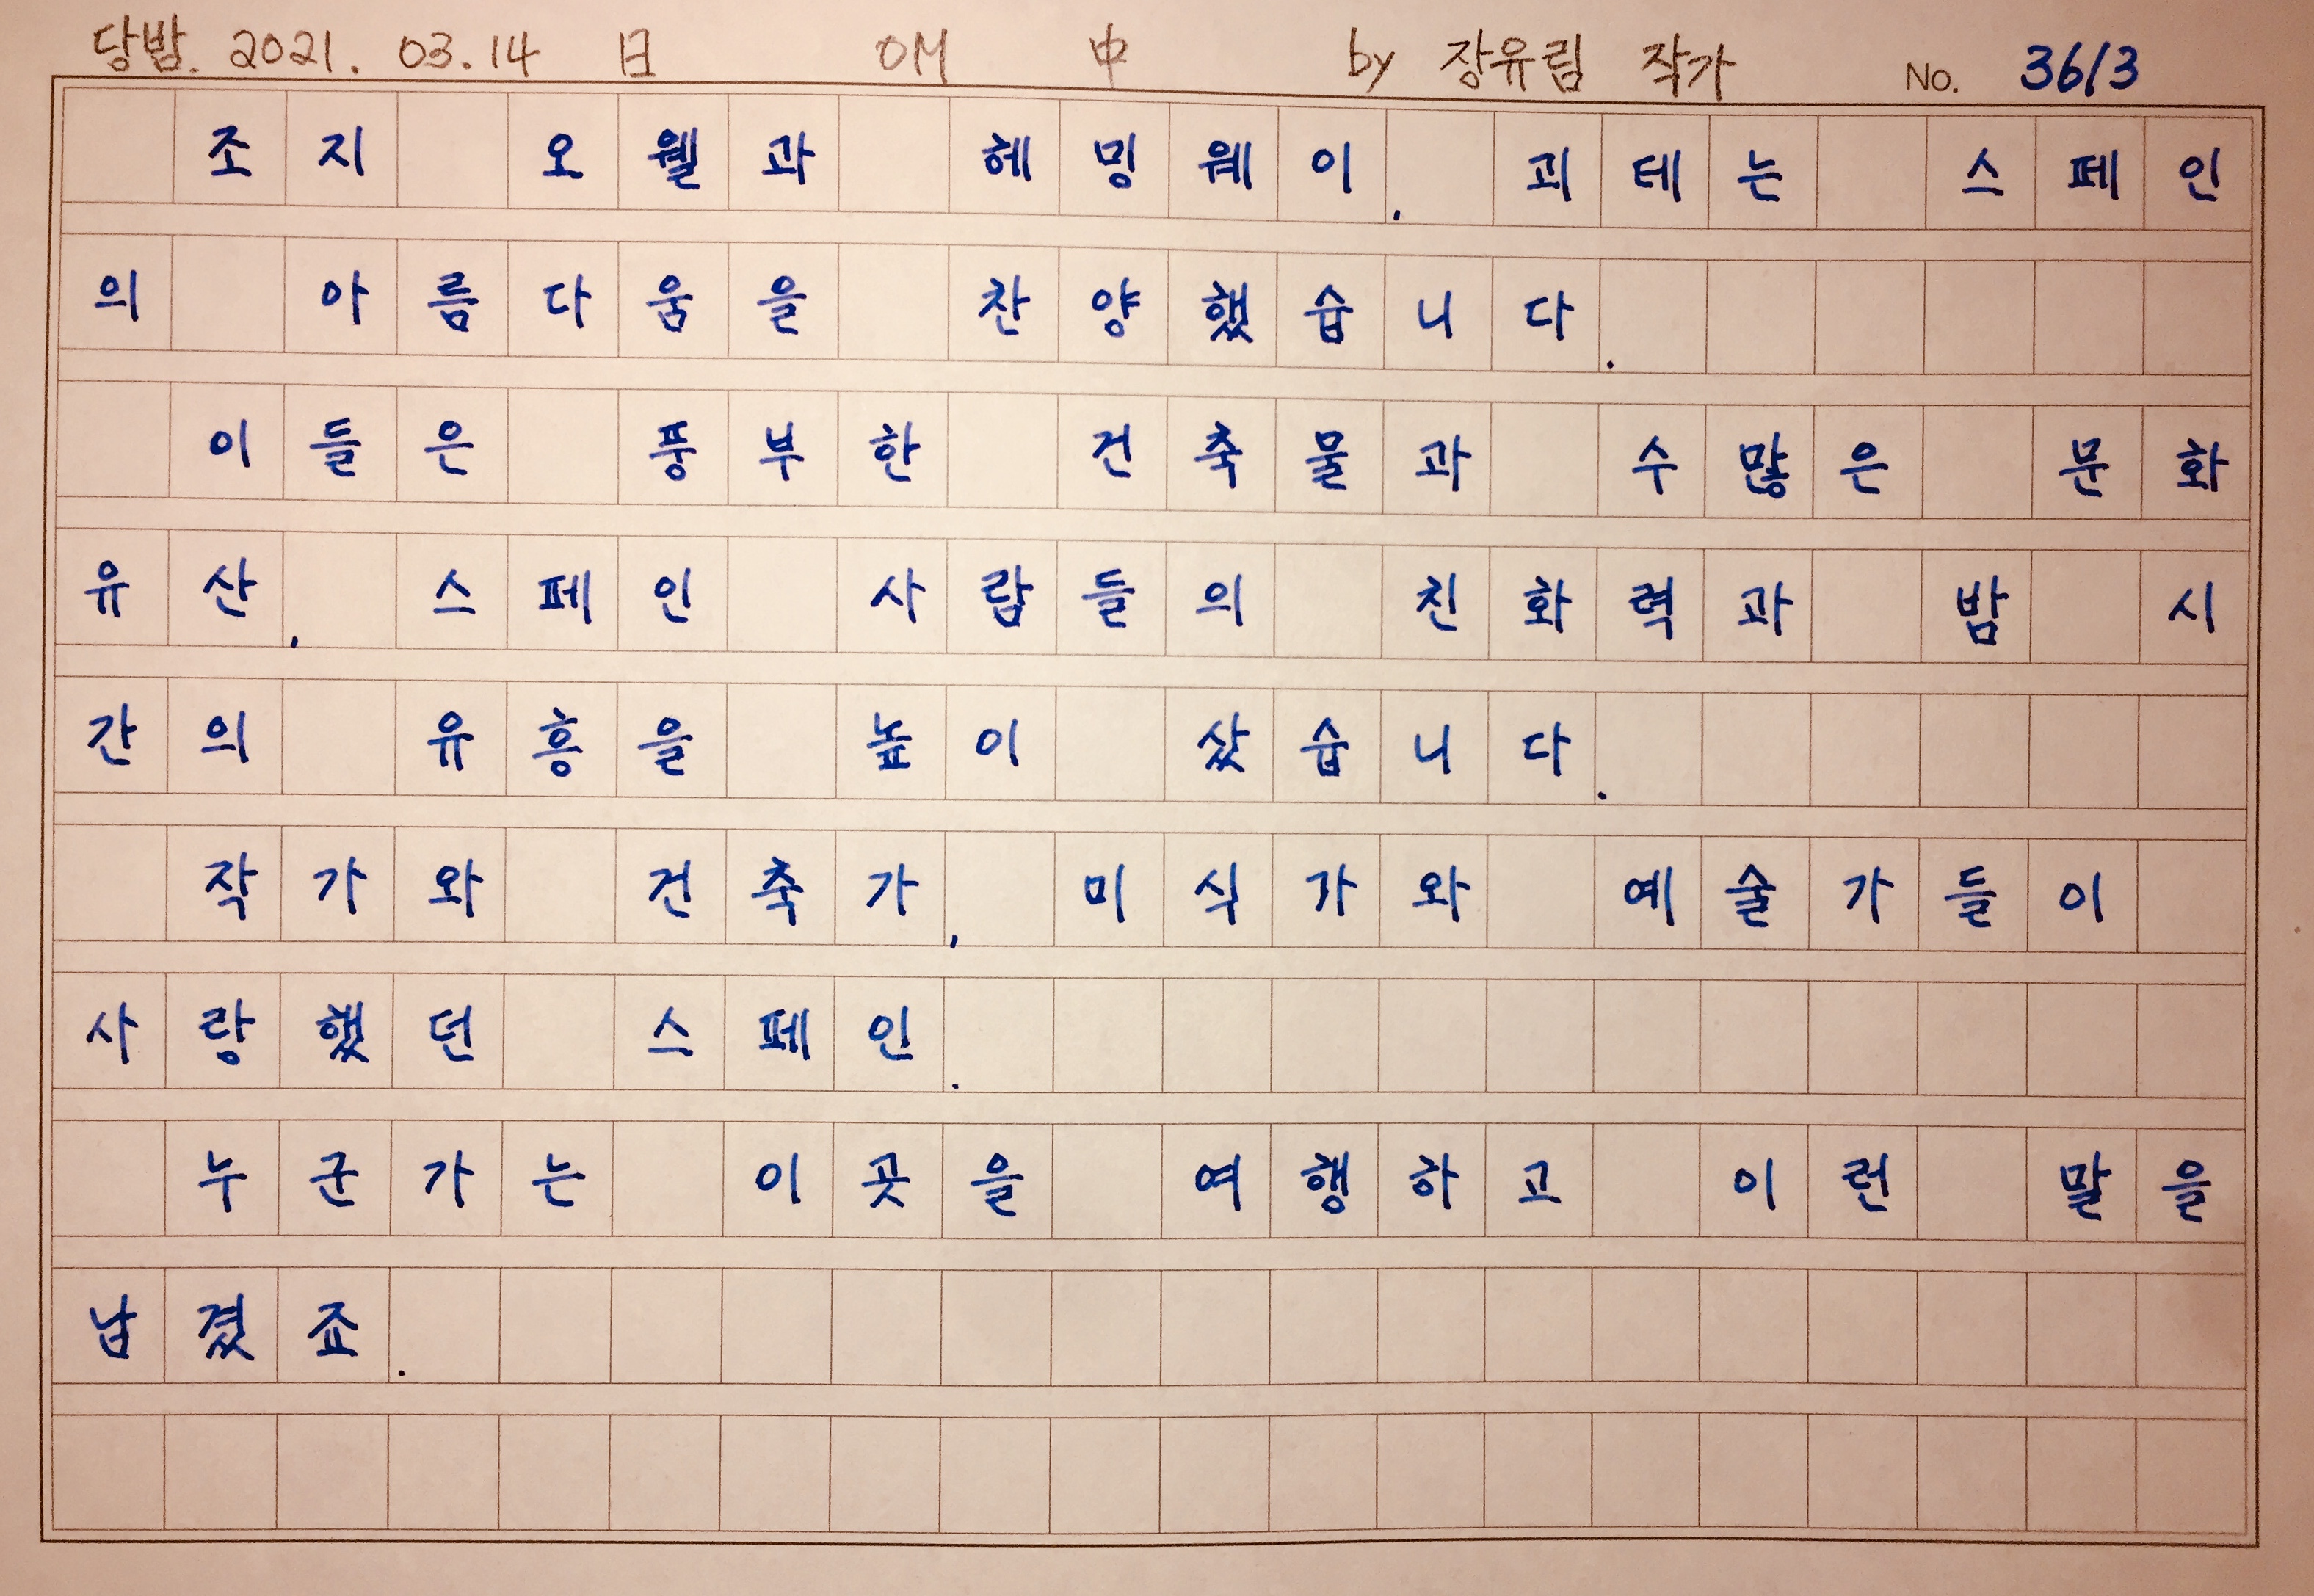 당밤. 2021. 03. 14 日 OM 中 by 장유림 작가 No. 3613
조지 오웰과 헤밍웨이, 괴테는 스페인
의 아름다움을 찬양했습니다.
이들은 풍부한 건축물과 수많은 문화
유산, 스페인 사람들의 친화력과 밤 시
간의 유흥을 높이 샀습니다.
작가와 건축가, 미식가와 예술가들이
사랑했던 스페인.
누군가는 이곳을 여행하고 이런 말을
남겼죠.